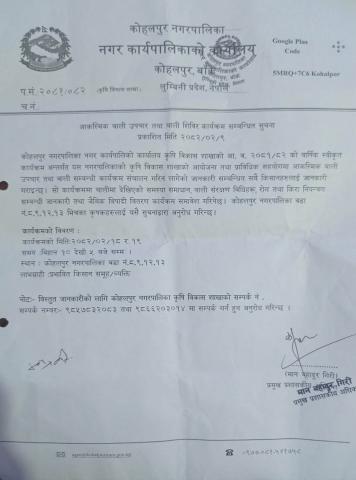 कोहलपुर नगरपालिका
नगर कार्यपालिकाको कार्यालय
कोहलपुर, बाँके
लुम्बिनी प्रदेश, नेपाल
Google Plus
Code
5MRQ+7C6 Kohalpur
प.सं.२०८१/०८२ (कृषि विकास शाखा)
च.नं.
आकस्मिक बाली उपचार तथा बाली शिविर कार्यक्रम सम्बन्धित सूचना
प्रकाशित मिति २०८२/०२/९
कोहलपुर नगरपालिका नगर कार्यपालिको कार्यालय कृषि विकास शाखाको आ. व. २०८१/८२ को वार्षिक स्वीकृत
कार्यक्रम अन्तर्गत यस नगरपालिकाको कृषि विकास शाखाको आयोजना तथा प्राविधिक सहयोगमा आकस्मिक बाली
उपचार तथा बाली सम्बन्धी कार्यक्रम संचालन गरिने भएकोले जानकारी सम्बन्धित सबै किसानहरुलाई जानकारी
गराइन्छ। सो कार्यक्रममा बालीमा देखिएको समस्या समाधान, बाली संरक्षण विधिहरु, रोग तथा किरा नियन्त्रण
सम्बन्धी जानकारी तथा जैविक विषादी वितरण कार्यक्रम समावेश गरिनेछ। कोहलपुर नगरपालिका वडा
नं.८,९,१२,१३ भित्रका कृषकहरुलाई यसै सूचनाद्वारा अनुरोध गरिन्छ।
कार्यक्रमको विवरण :
कार्यक्रमको मिति:२०८२/०२/१८ र १९
समय :बिहान १० देखी ५ बजे सम्म ।
स्थान : कोहलपुर नगरपालिका वडा नं.८,९,१२,१३
लाभग्राही :प्रभावित किसान समूह/व्यक्ति
नोटः- विस्तृत जानकारीको लागि कोहलपुर नगरपालिका कृषि विकास शाखाको सम्पर्क नं .
सम्पर्क नम्बरः- ९८५७८३२०८३ तथा ९८६६२०३०१४ मा सम्पर्क गर्न हुन अनुरोध गरिन्छ ।
(मान बहादुर गिरी)
प्रमुख प्रशासकीय
मान बहादुर गिरी
प्रमुख प्रशासकीय अधिकृ